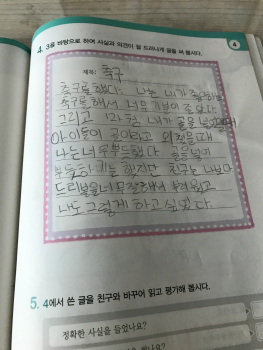 4. 3을 바탕으로 하여 사실과 의견이 잘 드러나게 글을 써 봅시다.
4
제목: 축구
축구를 했다. 나는 내가 좋아하는
축구를 해서 너무 기분이 좋았다.
그리고 내가 골을 넣
아이들이 골이라고 외쳤을 때
나는 너무 뿌듯했다 골을 넣어
뿌듯하기는 했지만 친구는 나보다
드리블을 너무 잘해서 부러웠고
나도 그렇게 하고 싶었다.
5. 4에서 쓴 글을 친구와 바꾸어 읽고 평가해 봅시다.
정확한 사실을 들었나요?